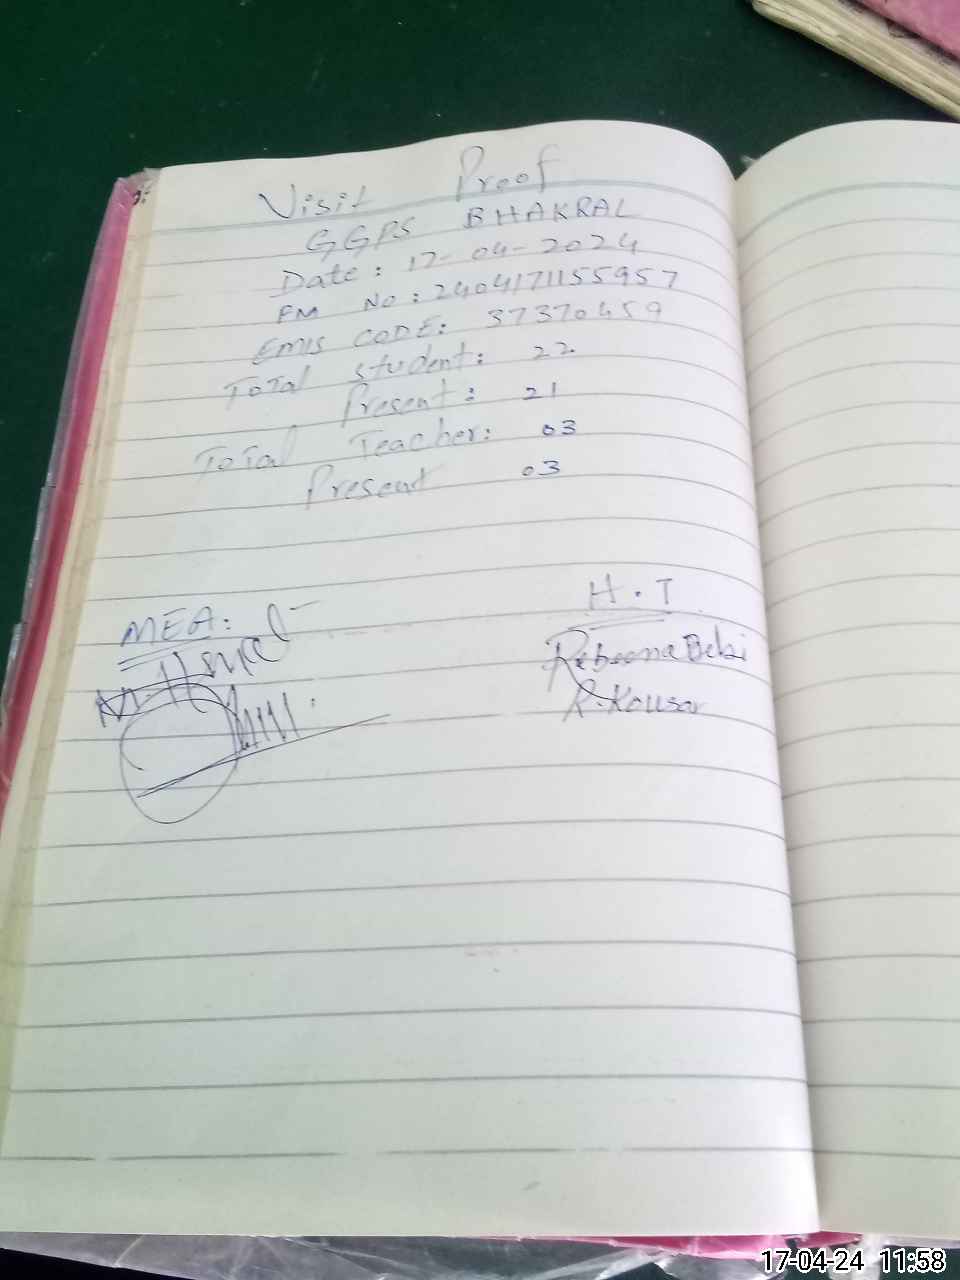 Visit Proof
GGPS BHAKRAL
Date: 17-04-2024
FM No: 2404171155957
EMIS CODE: 37370459
Total student: 22
Present: 21
Total Teacher: 03
Present 03
MEA:
H.T
Rebeena Bebi
R.Kousar
17-04-24 11:58